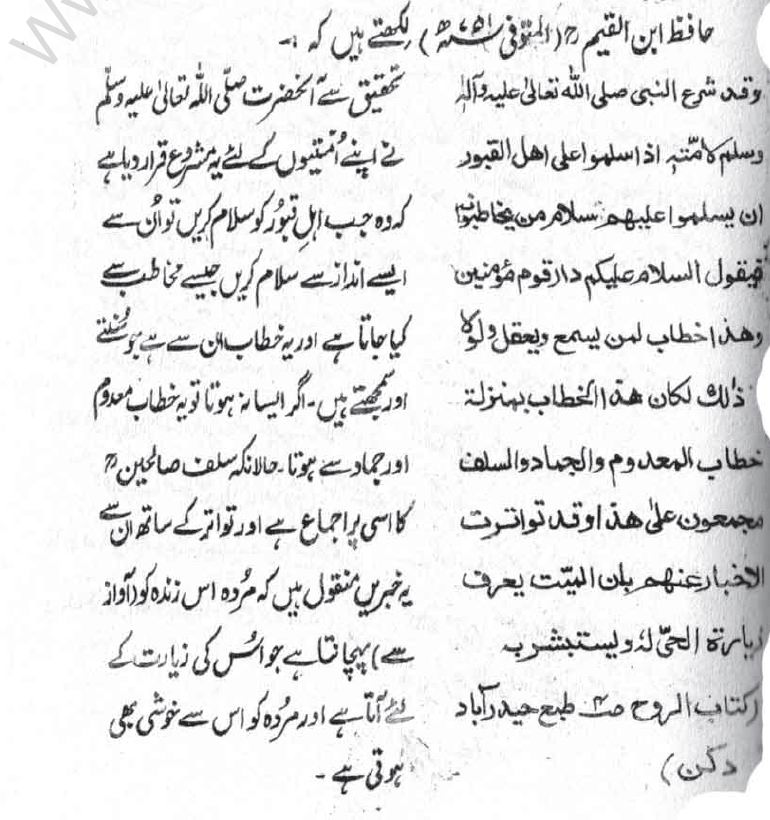 حافظ ابن القیم رح (المتوفی ۷۵۱ھ) لکھتے ہیں کہ :-
وقد شرع النبی صلی اللہ تعالیٰ علیہ وآلہ
وسلم لامتہ اذا سلموا علی اهل القبور
ان یسلموا علیهم سلام من یخاطبونہ
فیقول السلام علیکم دار قوم مؤمنین
وهذا خطاب لمن یسمع ویعقل ولولا
ذلك لکان هذا الخطاب بمنزلة
خطاب المعدوم والجماد والسلف
مجمعون علیٰ هذا وقد تواترت
الاخبار عنهم بان المیّت یعرف
زیارة الحیّ لہٗ ویستبشر بہ
(کتاب الروح ص۴ طبع حیدرآباد
دکن)
تحقیق سے آنحضرت صلّی اللہ تعالیٰ علیہ وسلّم
نے اپنے اُمتیوں کے لئے یہ مشروع قرار دیا ہے
کہ وہ جب اہلِ قبُور کو سلام کریں تو اُن سے
ایسے انداز سے سلام کریں جیسے مخاطب سے
کیا جاتا ہے اور یہ خطاب ان سے ہے جو سُنتے
اور سمجھتے ہیں۔ اگر ایسا نہ ہوتا تو یہ خطاب معدوم
اور جماد سے ہوتا۔ حالانکہ سلف صالحین رح
کا اسی پر اجماع ہے اور تواتر کے ساتھ ان سے
یہ خبریں منقول ہیں کہ مُردہ اس زندہ کو (آواز
سے) پہچانتا ہے جو اُس کی زیارت کے
لئے آتا ہے اور مُردہ کو اس سے خوشی بھی
ہوتی ہے۔